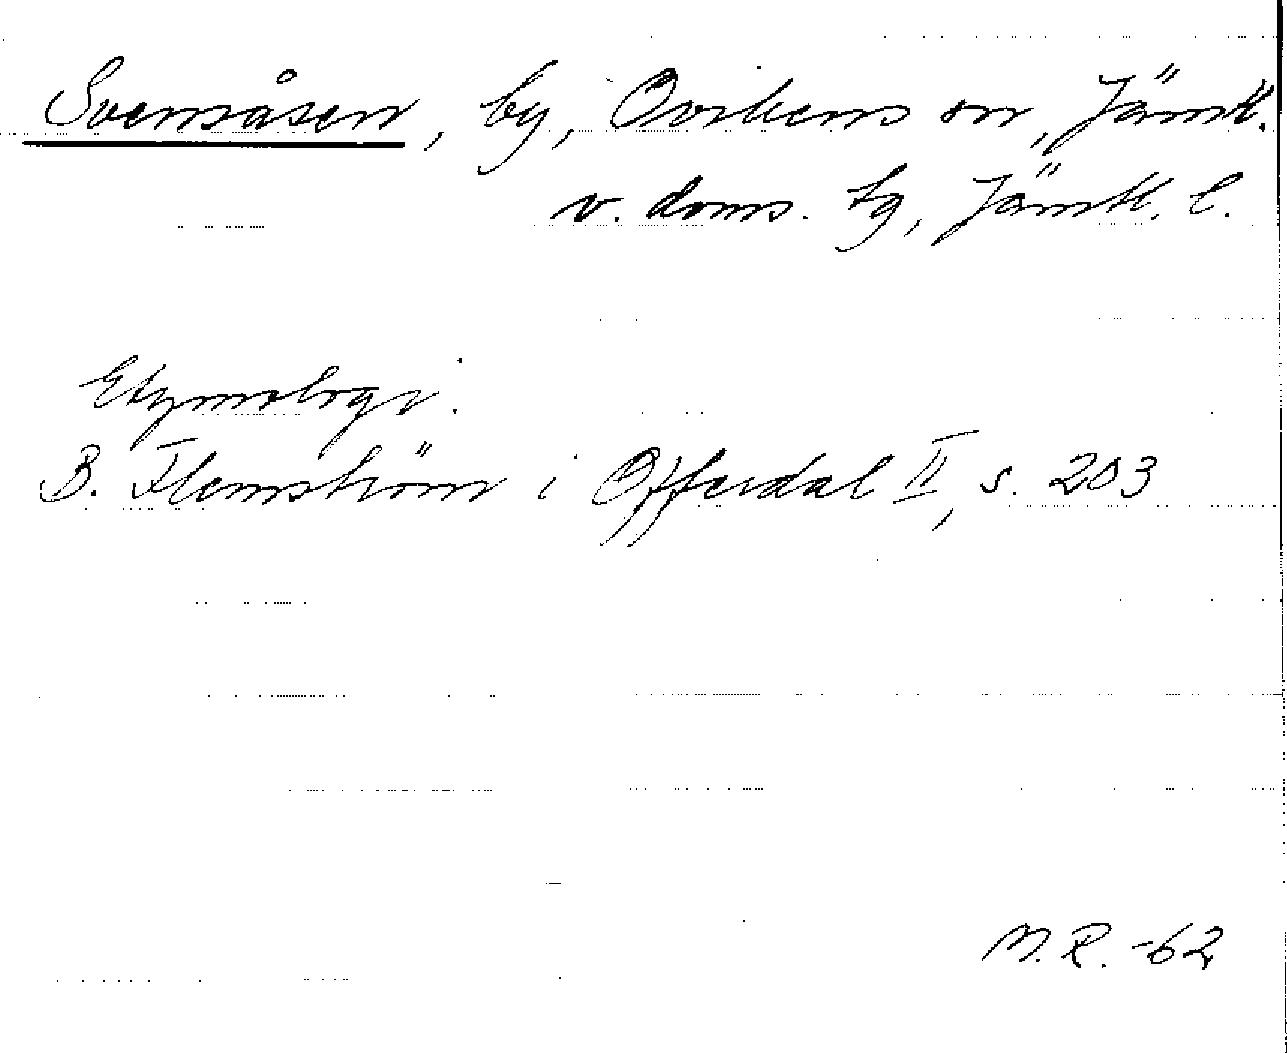 Svensåsen, by, Ovikens sn, Jämtl.
v. doms. tg, Jämtl. l.
Etymologi.
B. Flemström i Offerdal II, s. 203
M.R. -62